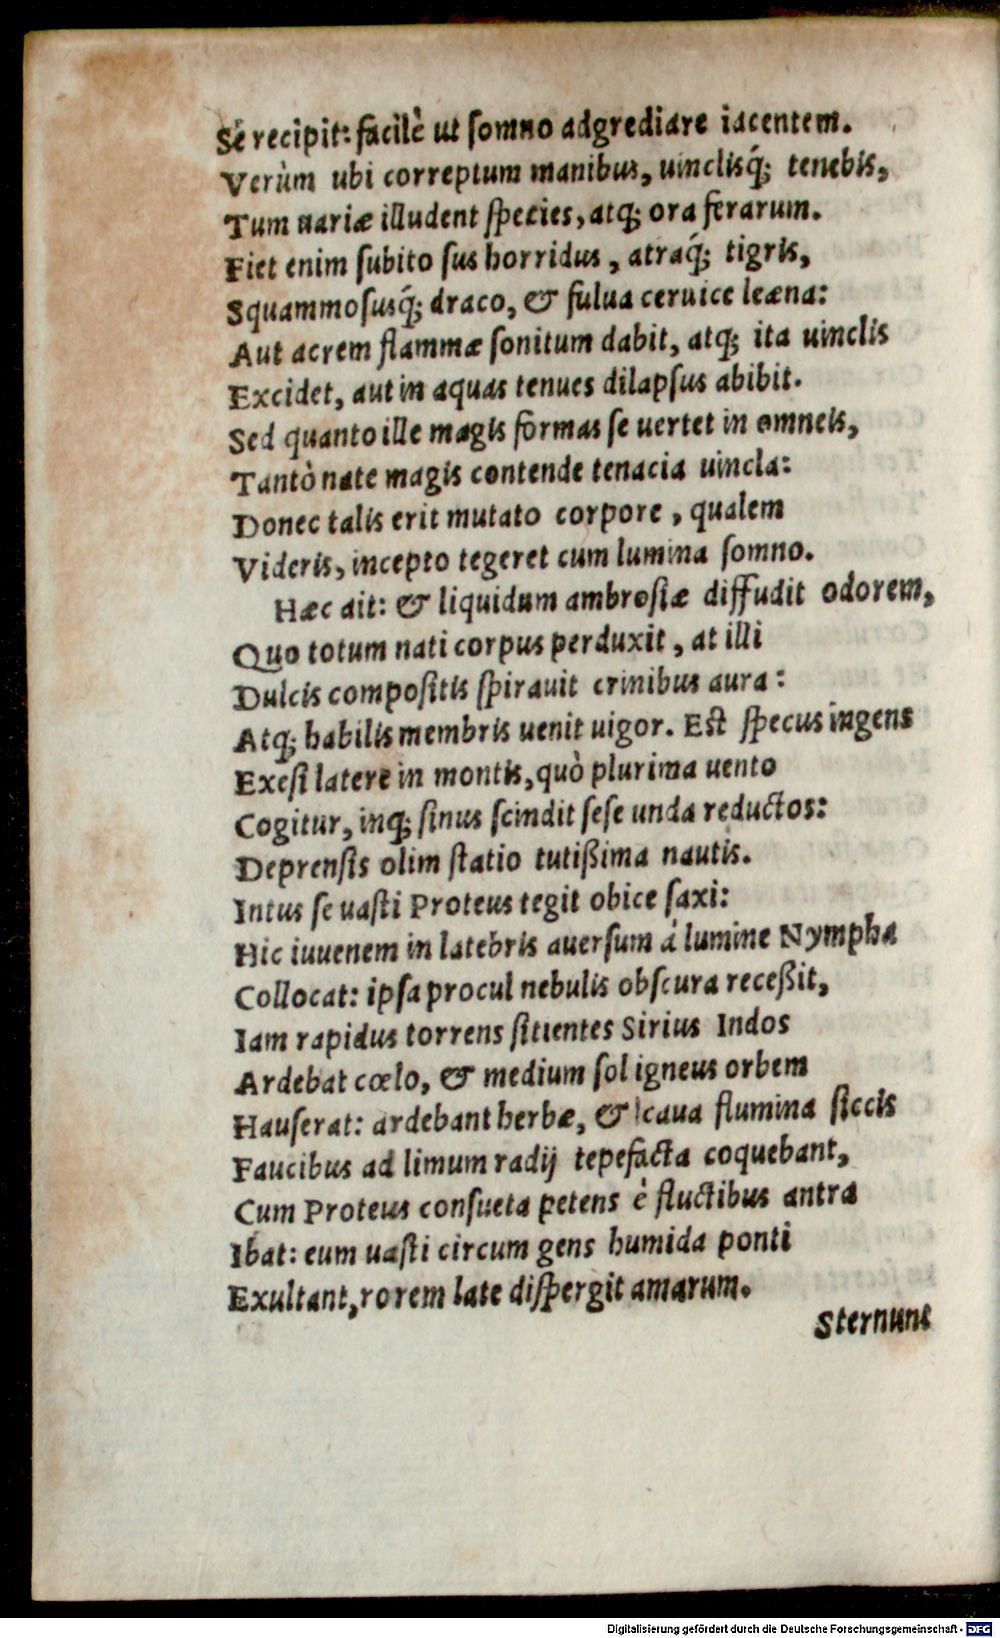 Se recipit: facilè ut ſomno adgrediare iacentem.
Verùm ubi correptum manibus, uinclisq́; tenebis,
Tum uariæ illudent ſpecies, atq; ora ferarum.
Fiet enim ſubito ſus horridus, atraq́; tigris,
Squammoſusq́; draco, & fulua ceruice leæna:
Aut acrem flammæ ſonitum dabit, atq; ita uinclis
Excidet, aut in aquas tenues dilapſus abibit.
Sed quanto ille magis formas ſe uertet in omneis,
Tantò nate magis contende tenacia uincla:
Donec talis erit mutato corpore, qualem
Videris, incepto tegeret cum lumina ſomno.
Hæc ait: & liquidum ambroſiæ diffudit odorem,
Quo totum nati corpus perduxit, at illi
Dulcis compoſitis ſpirauit crinibus aura:
Atq; habilis membris uenit uigor. Eſt ſpecus ingens
Exeſi latere in montis, quò plurima uento
Cogitur, inq; ſinus ſcindit ſeſe unda reductos:
Deprenſis olim ſtatio tutißima nautis.
Intus ſe uaſti Proteus tegit obice ſaxi:
Hic iuuenem in latebris auerſum à lumine Nympha
Collocat: ipſa procul nebulis obſcura receßit,
Iam rapidus torrens ſitientes Sirius Indos
Ardebat cœlo, & medium ſol igneus orbem
Hauſerat: ardebant herbæ, & caua flumina ſiccis
Faucibus ad limum radij tepefacta coquebant,
Cum Proteus conſueta petens è fluctibus antra
Ibat: eum uaſti circum gens humida ponti
Exultant, rorem late diſpergit amarum.
Sternunt
Digitalisierung gefördert durch die Deutsche Forschungsgemeinschaft - DFG